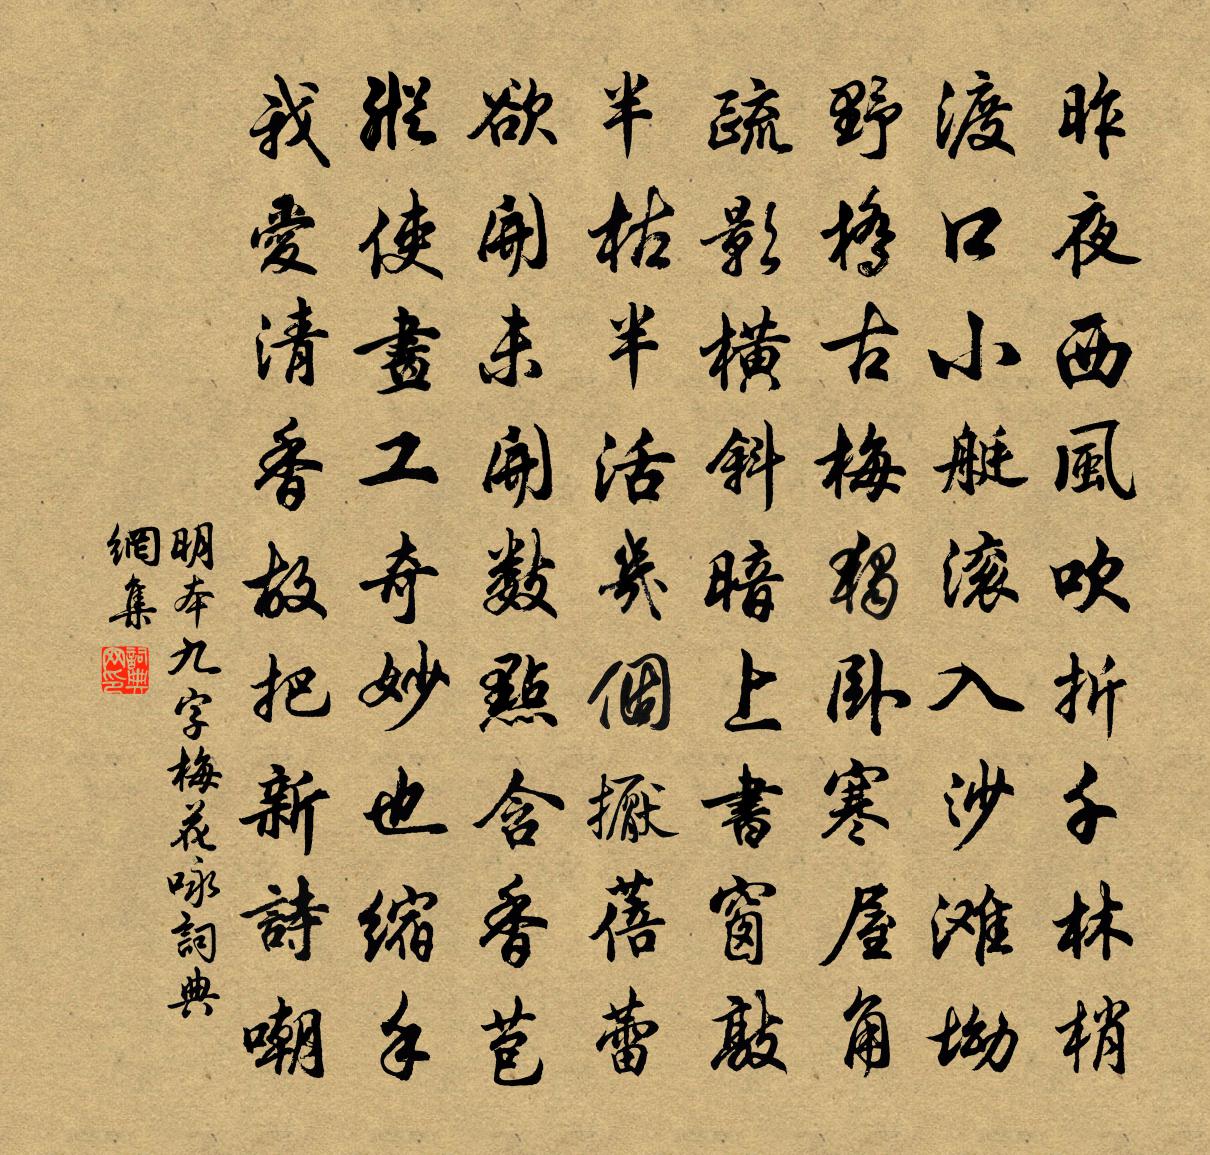 昨夜西風吹折千林梢
渡口小艇滚入沙滩坳
野橋古梅獨卧寒屋角
疏影橫斜暗上書窗敲
半枯半活幾個擫蓓蕾
欲開未開數點含香苞
縱使畫工奇妙也縮手
我愛清香故把新詩嘲
明本九字梅花咏詞典
網集
詞典网印